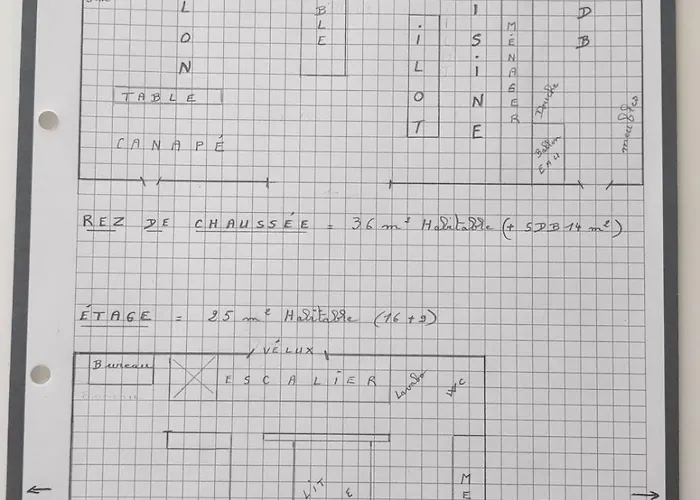 LON
BLE
ILOT
ISINE
MÉNAGER
DB
TABLE
CANAPÉ
Douche
Ballon
EAU
meubles
REZ DE CHAUSSÉE = 36 m² Habitable (+ SDB 14 m²)
ÉTAGE = 25 m² Habitable (16 + 9)
VÉLUX
Bureau
ESCALIER
Lavabo
WC
LIT
E
ME